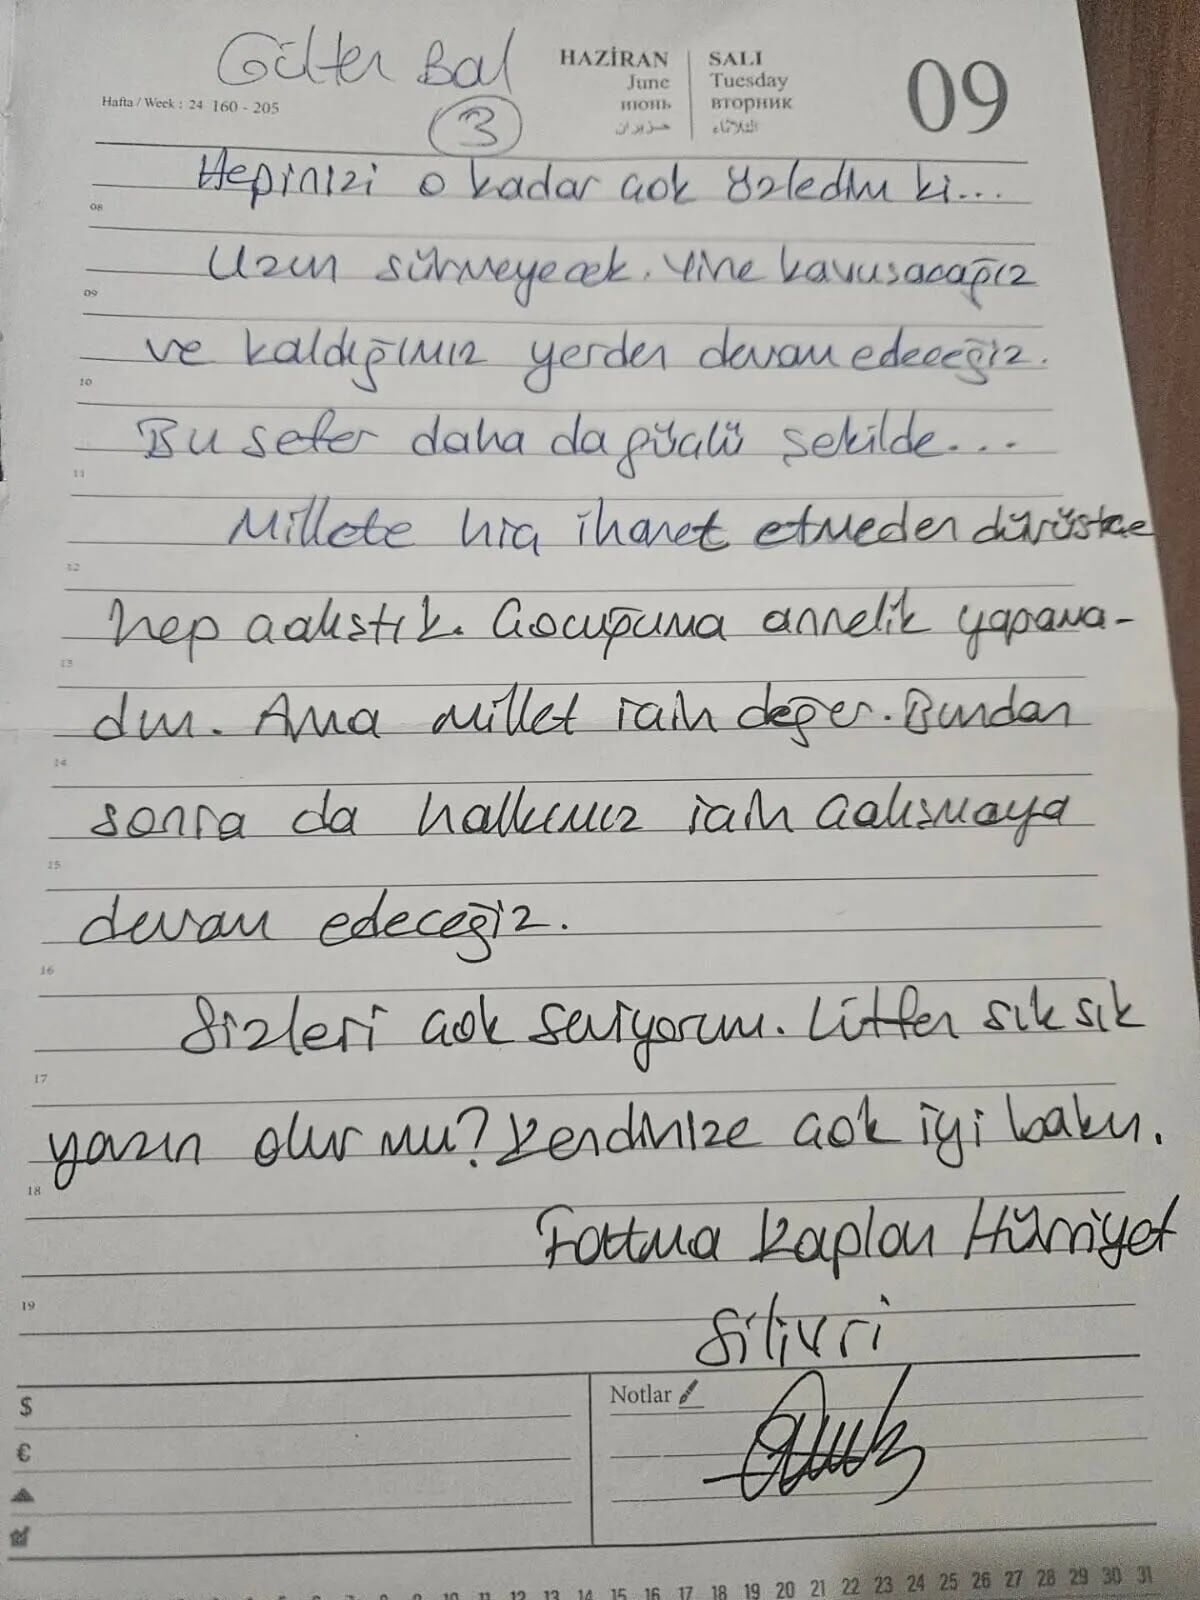 Gülfer Bal
HAZİRAN SALI 09
June Tuesday
июнь вторник
حزيران الثلاثاء
Hafta / Week : 24 160 - 205
3
Hepinizi o kadar çok özledim ki...
08
Uzun sürmeyecek. Yine kavuşacağız
09
ve kaldığımız yerden devam edeceğiz.
10
Bu sefer daha da güçlü şekilde...
11
Millete hiç ihanet etmeden dürüstçe
12
hep çalıştık. Çocuğuma annelik yapama-
13
dım. Ama millet için değer. Bundan
14
sonra da halkımız için çalışmaya
15
devam edeceğiz.
16
Sizleri çok seviyorum. Lütfen sık sık
17
yazın olur mu? Kendinize çok iyi bakın.
18
Fatma Kaplan Hürriyet
19
Silivri
$
Notlar
€
10 11 12 13 14 15 16 17 18 19 20 21 22 23 24 25 26 27 28 29 30 31